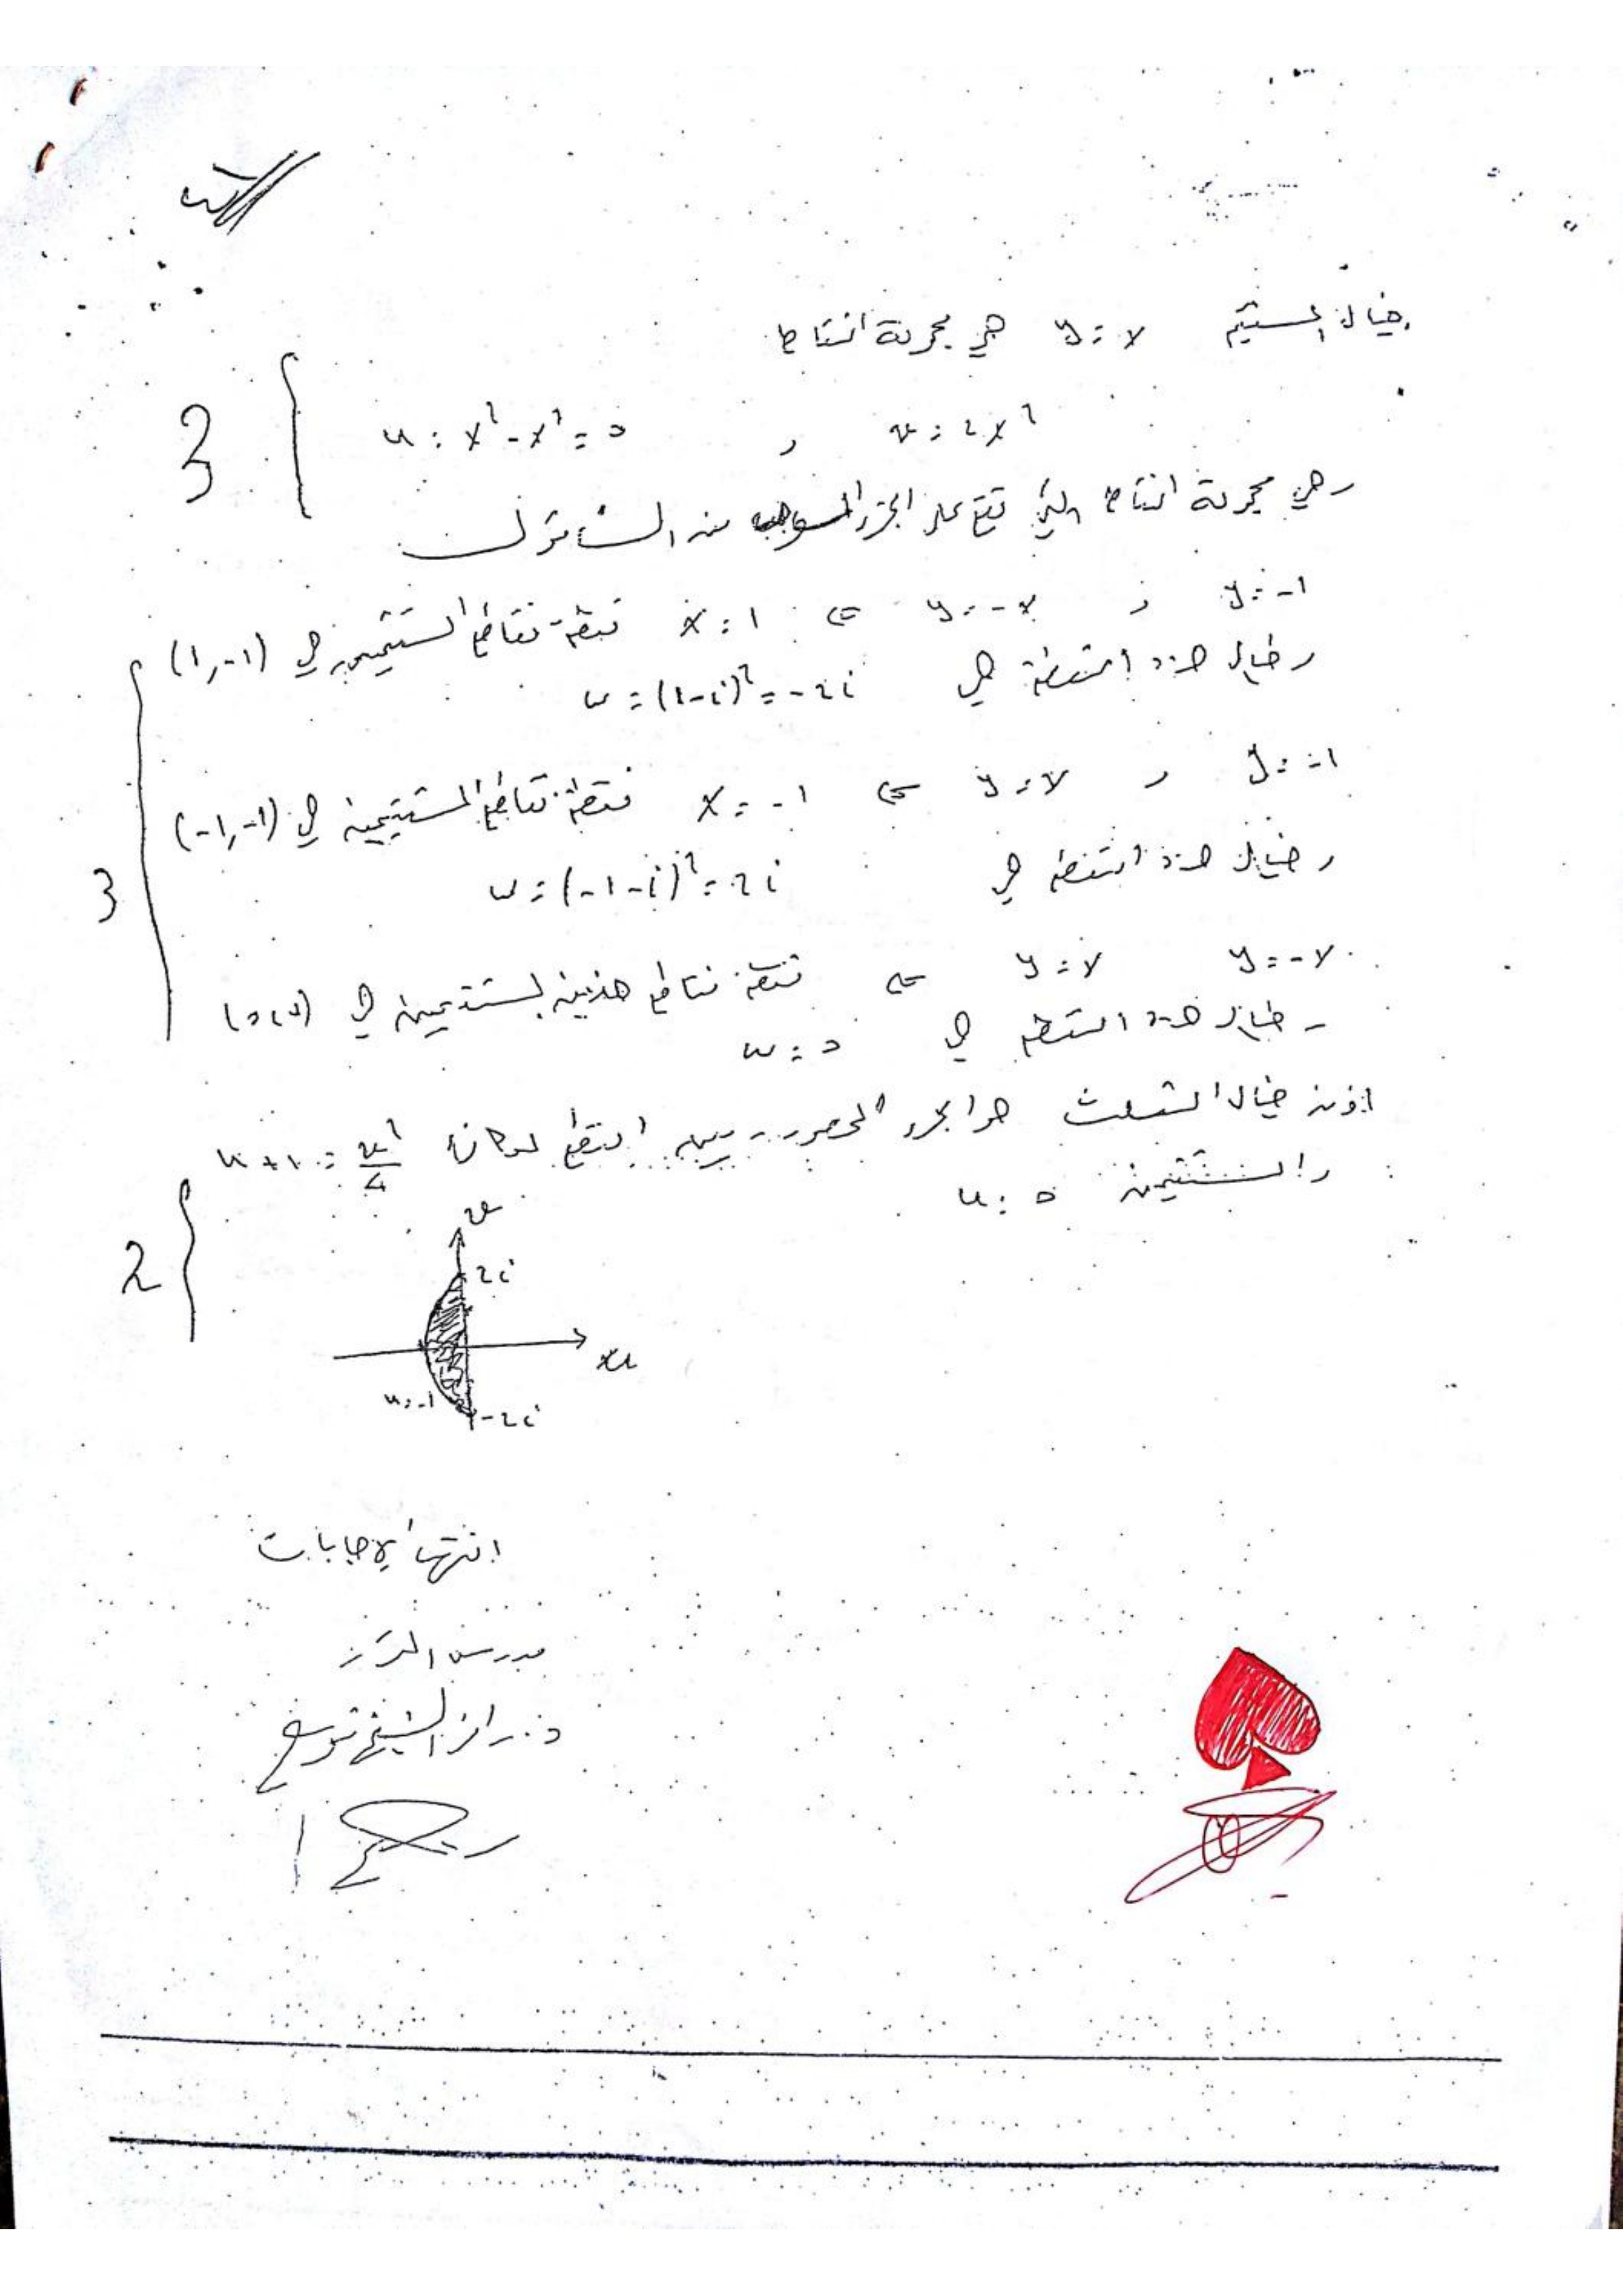 خيال المستقيم y = x هي مجموعة النقاط
3 { u = x² - x² = 0 , v = 2x²
وهي مجموعة النقاط التي تقع على الجزء الموجب من المحور
y = -1 و y = -x ⇐ x = 1 نقطة تقاطع المستقيمين هي (1,-1)
وخيال هذه النقطة هي w = (1-i)² = -2i
y = -1 و y = x ⇐ x = -1 نقطة تقاطع المستقيمين هي (-1,-1)
3 { وخيال هذه النقطة هي w = (-1-i)² = 2i
y = -x y = x ⇐ نقطة تقاطع هذين المستقيمين هي (0,0)
وخيال هذه النقطة هي w = 0
إذن خيال المثلث هو الجزء المحصور بين القطع المكافئ u+1 = v²/4
والمستقيمين u = 0
2 {
v
2i
u
u = -1
-2i
انتهت الإجابات
مدرس المقرر
د. رامز الشيخ